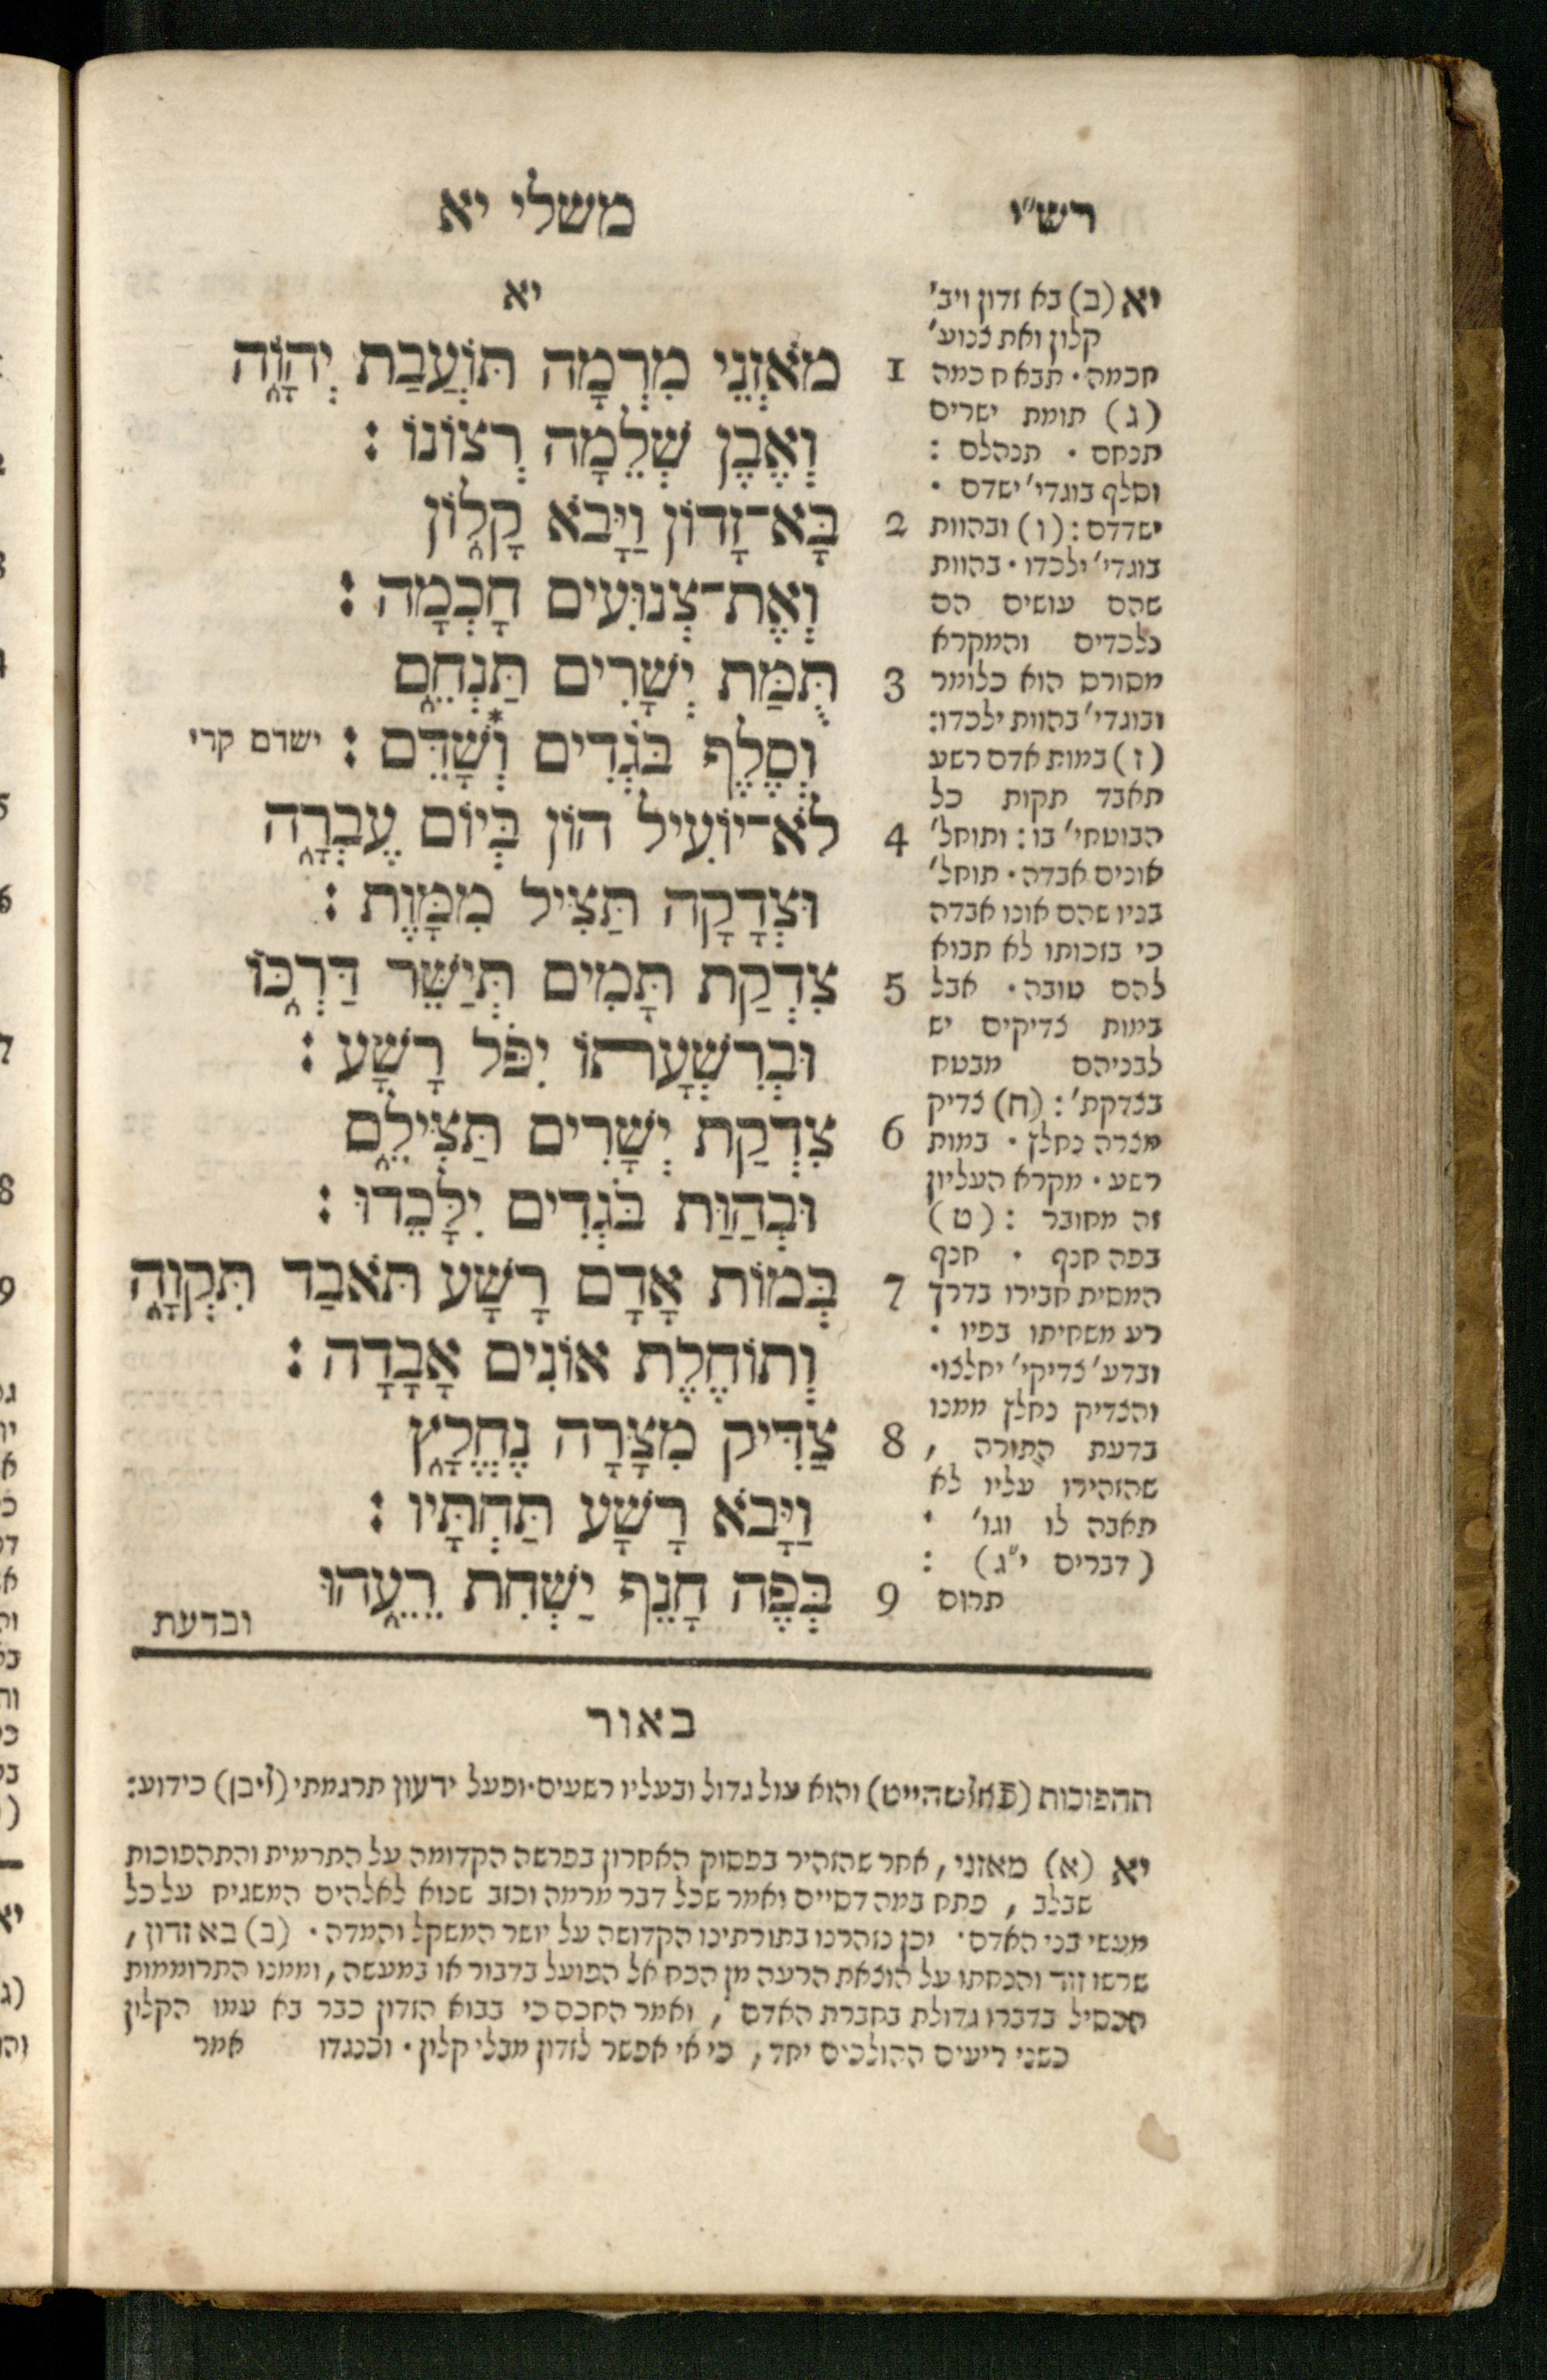 משלי יא
יא
1 מֹאזְנֵי מִרְמָה תּוֹעֲבַת יְהוָֹ֑ה
וְאֶבֶן שְׁלֵמָה רְצוֹנוֹ :
2 בָּא־זָדוֹן וַיָּבֹא קָל֑וֹן
וְאֶת־צְנוּעִים חָכְמָה :
3 תֻּמַּת יְשָׁרִים תַּנְחֵ֑ם
וְסֶלֶף בֹּגְדִים *וְשָׁדֵּם : ישדם קרי
4 לֹא־יוֹעִיל הוֹן בְּיוֹם עֶבְרָ֑ה
וּצְדָקָה תַּצִּיל מִמָּוֶת :
5 צִדְקַת תָּמִים תְּיַשֵּׁר דַּרְכּ֑וֹ
וּבְרִשְׁעָתוֹ יִפֹּל רָשָׁע :
6 צִדְקַת יְשָׁרִים תַּצִּילֵ֑ם
וּבְהַוַּת בֹּגְדִים יִלָּכֵדוּ :
7 בְּמוֹת אָדָם רָשָׁע תֹּאבַד תִּקְוָ֑ה
וְתוֹחֶלֶת אוֹנִים אָבָדָה :
8 צַדִּיק מִצָּרָה נֶחֱלָ֑ץ
וַיָּבֹא רָשָׁע תַּחְתָּיו :
9 בְּפֶה חָנֵף יַשְׁחִת רֵעֵ֑הוּ
ובדעת
רש״י
יא (ב) בא זדון ויב׳
קלון ואת צנוע׳
חכמה · תבא חכמה
(ג) תומת ישרים
תנחם · תנהלם :
וסלף בוגדי׳ ישדם ·
ישדדם : (ו) ובהוות
בוגדי׳ ילכדו · בהוות
שהם עושים הם
נלכדים והמקרא
מסורס הוא כלומר
ובוגדי׳ בהוות ילכדו :
(ז) במות אדם רשע
תאבד תקות כל
הבוטחי׳ בו : ותוחל׳
אונים אבדה · תוחל׳
בניו שהם אונו אבדה
כי בזכותו לא תבוא
להם טובה · אבל
במות צדיקים יש
לבניהם מבטח
בצדקת׳ : (ח) צדיק
מצרה נחלץ · במות
רשע · מקרא העליון
זה מחובר : (ט)
בפה חנף · חנף
המסית חבירו בדרך
רע משחיתו בפיו ·
ובדע׳ צדיקי׳ יחלצו ·
והצדיק נחלץ ממנו
בדעת התורה ,
שהזהירו עליו לא
תאבה לו וגו׳ ·
(דברים י״ג) :
תרום
באור
תהפוכות (פאלשהייט) והוא עול גדול ובעליו רשעים · ופעל ידעון תרגמתי (זיבן) כידוע :
יא (א) מאזני , אחר שהזהיר בפסוק האחרון בפרשה הקדומה על התרמית והתהפוכות
שבלב , פתח במה דסיים ואמר שכל דבר מרמה וכזב שנוא לאלהים המשגיח על כל
מעשי בני האדם · וכן נזהרנו בתורתינו הקדושה על יושר המשקל והמדה · (ב) בא זדון ,
שרשו זוד והנחתו על הוצאת הרעה מן הכח אל הפועל בדבור או במעשה , וממנו התרוממות
הכסיל בדברו גדולת בחברת האדם , ואמר החכם כי בבוא הזדון כבר בא עמו הקלון
כשני ריעים ההולכים יחד , כי אי אפשר לזדון מבלי קלון · וכנגדו אמר